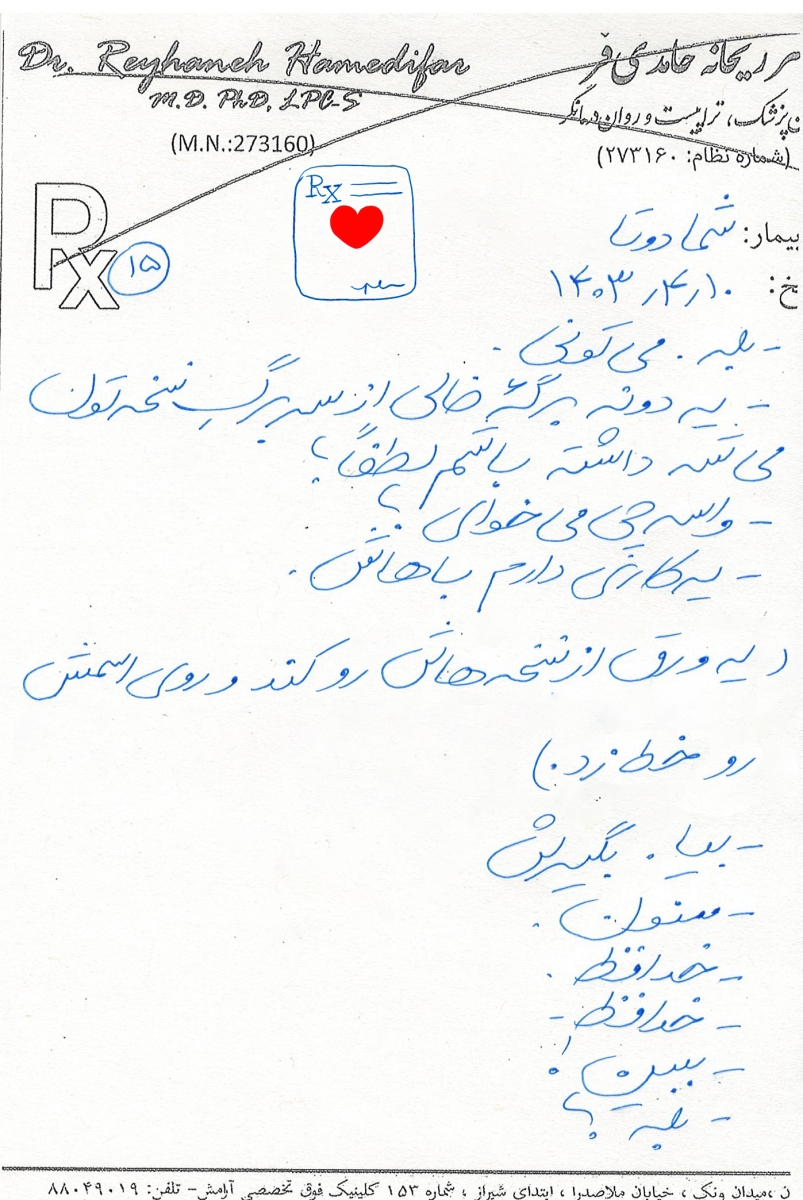 Dr. Reyhaneh Hamedifar
ر ریحانه حامدی فر
M.D. PhD, LPC-S
ن پزشک، تراپیست و روان درمانگر
(M.N.:273160)
(شماره نظام: ۲۷۳۱۶۰)
Rx
Rx
۱۵
بیمار: شما دوتا
خ: ۱۴۰۳٫۴٫۱۰
- بله. می تونی.
- یه دونه برگهٔ خالی از سربرگِ نسخه تون
می شه داشته باشم لطفاً؟
- واسه چی می خوای؟
- یه کاری دارم باهاش.
(یه ورق از نسخه هاش رو کند و روی اسمش
رو خط زد.)
- بیا. بگیرش
- ممنون.
- خدافظ.
- خدافظ.
- ببین!
- بله؟
ن ،میدان ونک ، خیابان ملاصدرا ، ابتدای شیراز ، شماره ۱۵۳ کلینیک فوق تخصصی آرامش- تلفن: ۸۸۰۴۹۰۱۹